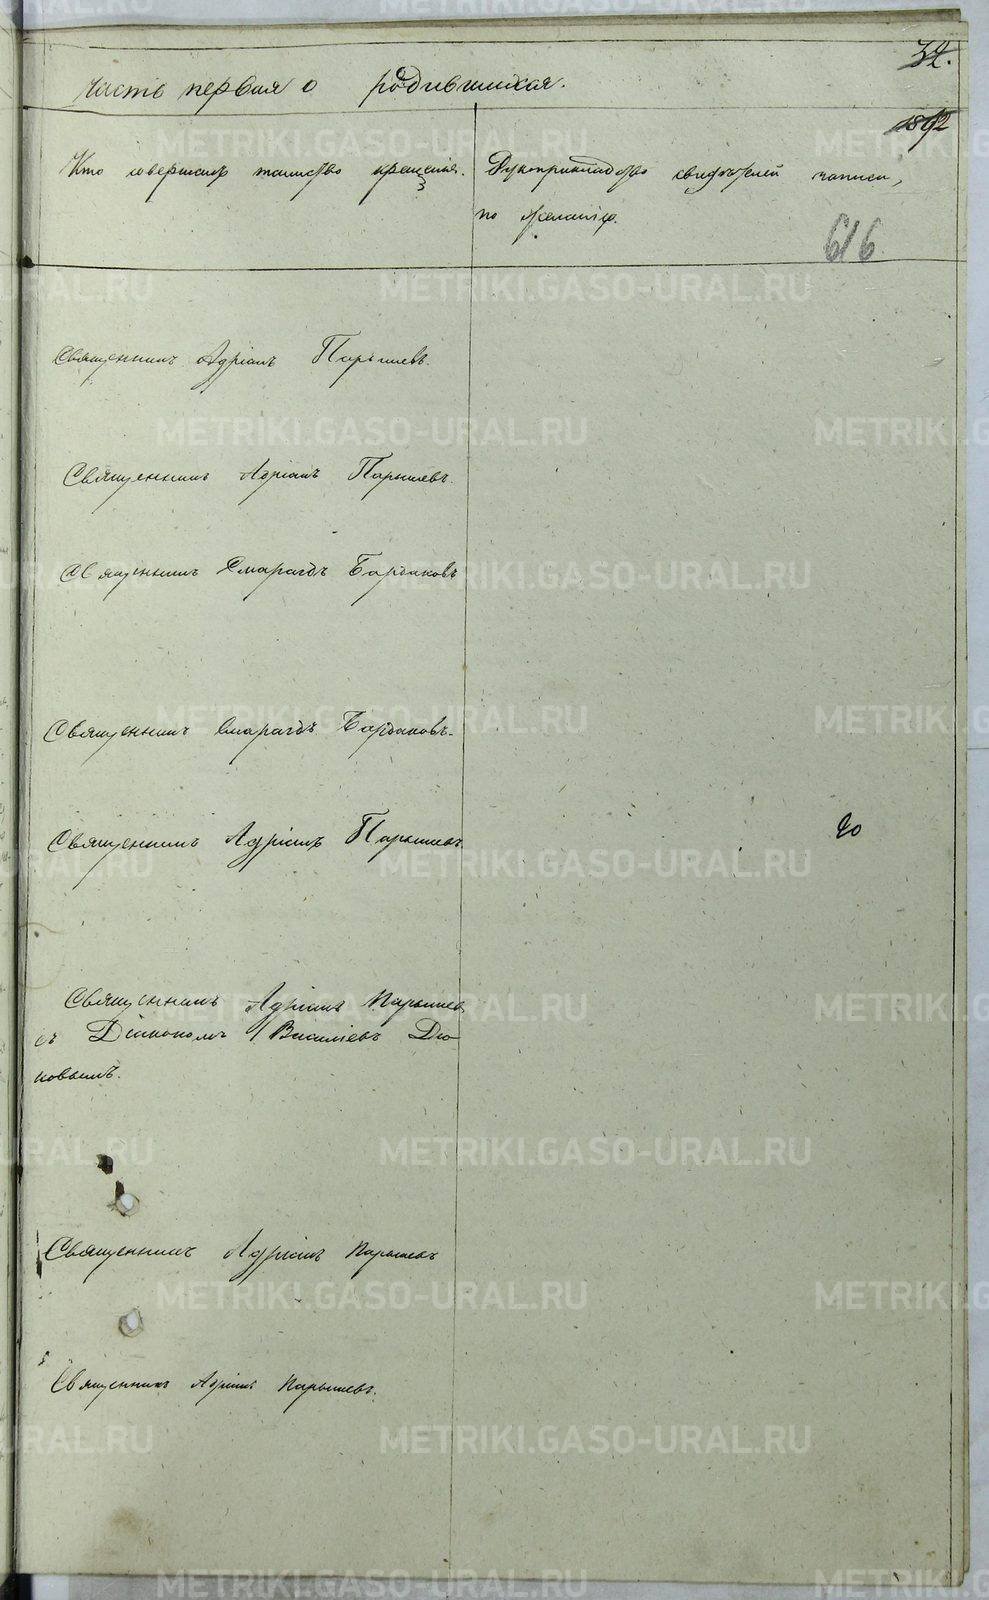 32.
часть первая о родившихся.
1892
Кто совершалъ таинство крещенія.
Рукоприкладство свидѣтелей записи,
по желанію.
616
Священникъ Адріанъ Парышевъ.
Священникъ Адріанъ Парышевъ.
Священникъ Смарагдъ Бардаковъ
Священникъ Смарагдъ Бардаковъ.
Священникъ Адріанъ Парышевъ
20
Священникъ Адріанъ Парышевъ
съ Діакономъ Василіевъ Дю
ковымъ.
Священникъ Адріанъ Парышевъ
Священникъ Адріанъ Парышевъ.
METRIKI.GASO-URAL.RU